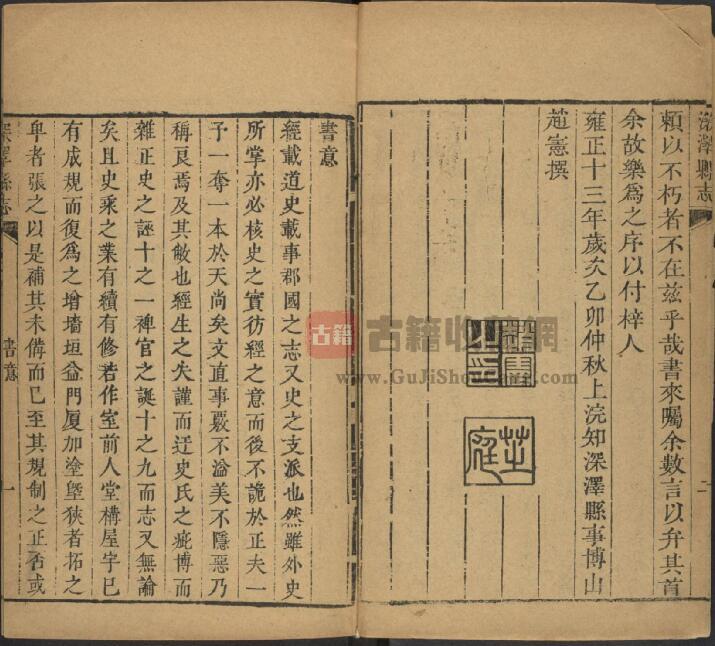 深澤縣志
二
賴以不朽者不在茲乎哉書來囑余數言以弁其首
余故樂為之序以付梓人
雍正十三年歲次乙卯仲秋上浣知深澤縣事博山
趙憲撰
芷庭
古籍
古籍收藏網
www.GuJiShouCang.com
書意
經載道史載事郡國之志又史之支派也然雖外史
所掌亦必核史之實彷經之意而後不詭於正夫一
予一奪一本於天尚矣文直事覈不溢美不隱惡乃
稱良焉及其敝也經生之失謹而迂史氏之疵博而
雜正史之誣十之一稗官之誕十之九而志又無論
矣且史乘之業有續有修若作室前人堂構屋宇巳
有成規而復為之增墻垣益門厦加塗塈狹者拓之
卑者張之以是補其未備而巳至其規制之正否或
深澤縣志
書意
一